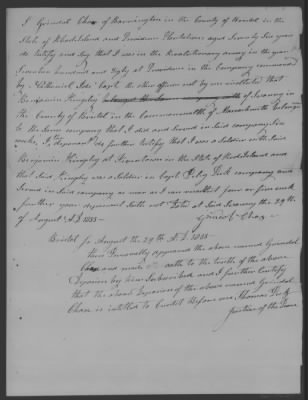 I Grindal Chase of Barrington in the County of Bristol in the
State of Rhode Island and Providence Plantations aged Seventy Six years
do testify and say that I was in the Revolutionary army in the year
Seventeen hundred and Eighty at Providence in the Company commanded
by Capt the other officers not by me recollected that
Benjamin Kingsley of Swansey in
the County of Bristol in the Commonwealth of Massachusetts belonged
to the same company that I did and served in said company
weeks, I, Deponent do further testify that I was a Soldier with said
Benjamin Kingsley at in the State of Rhode Island and
that said Kingsley was a Soldier in Capt company and
served in said company as near as I can recollect four or five week
further your deponent saith not Dated at said Swansey the 29th
of August A.D. 1833
Grindal Chase
Bristol Ss August the 29th A.D. 1833
then Personally appeared the above named Grindal
Chase and made oath to the truth of the above
Deposition by him Subscribed and I further Certify
that the above Deponent of the above named Grindal
Chase is intitled to Credit Before me Thomas
Justice of the Peace